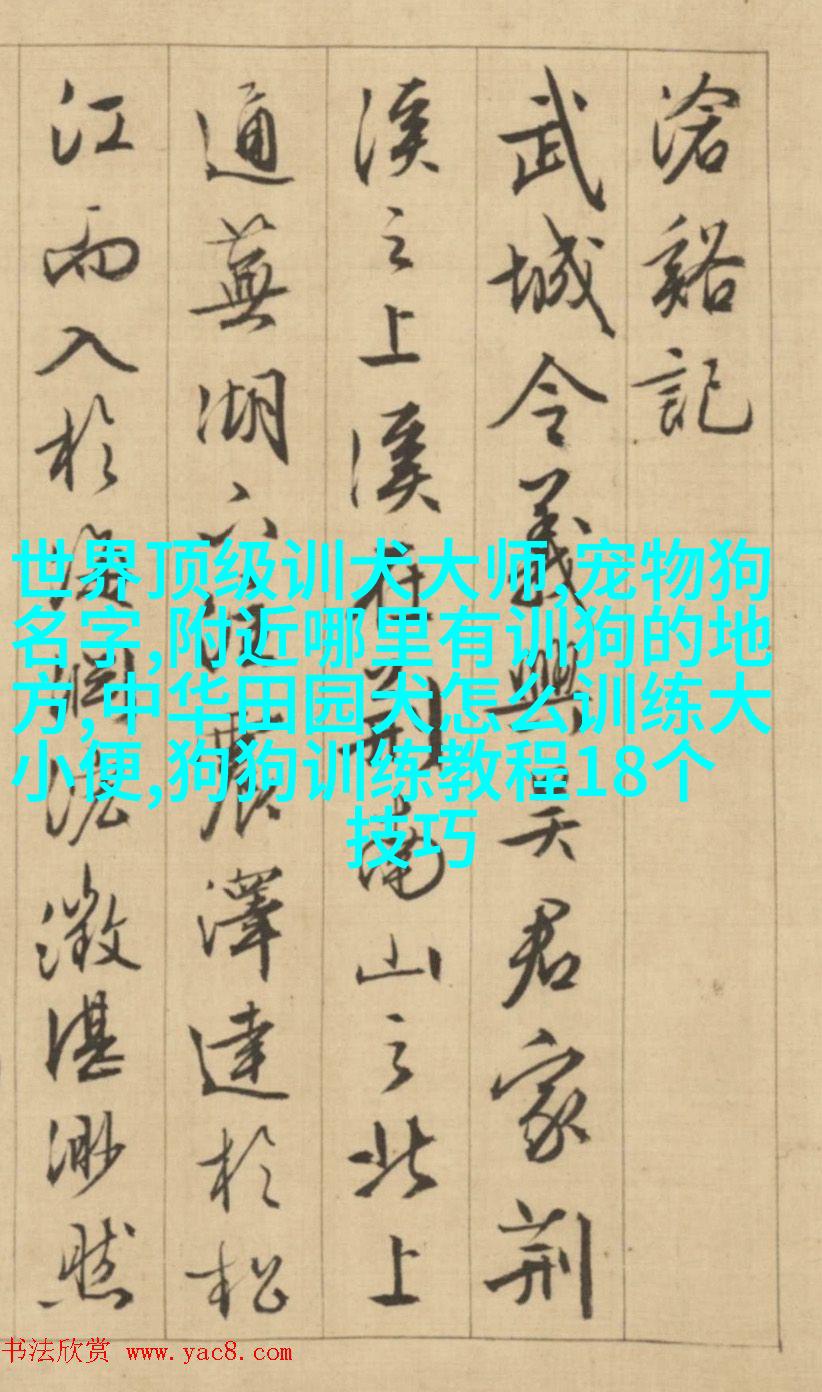 滄谿記
武城令義興吳君家荆
溪之上溪在荆南山之北上
通蕪湖下震澤達於松
江而入於澂湛渺然
世界顶级训犬大师,宠物狗
名字,附近哪里有训狗的地
方,中华田园犬怎么训练大
小便,狗狗训练教程18个
技巧
书法欣赏 www.yac8.com